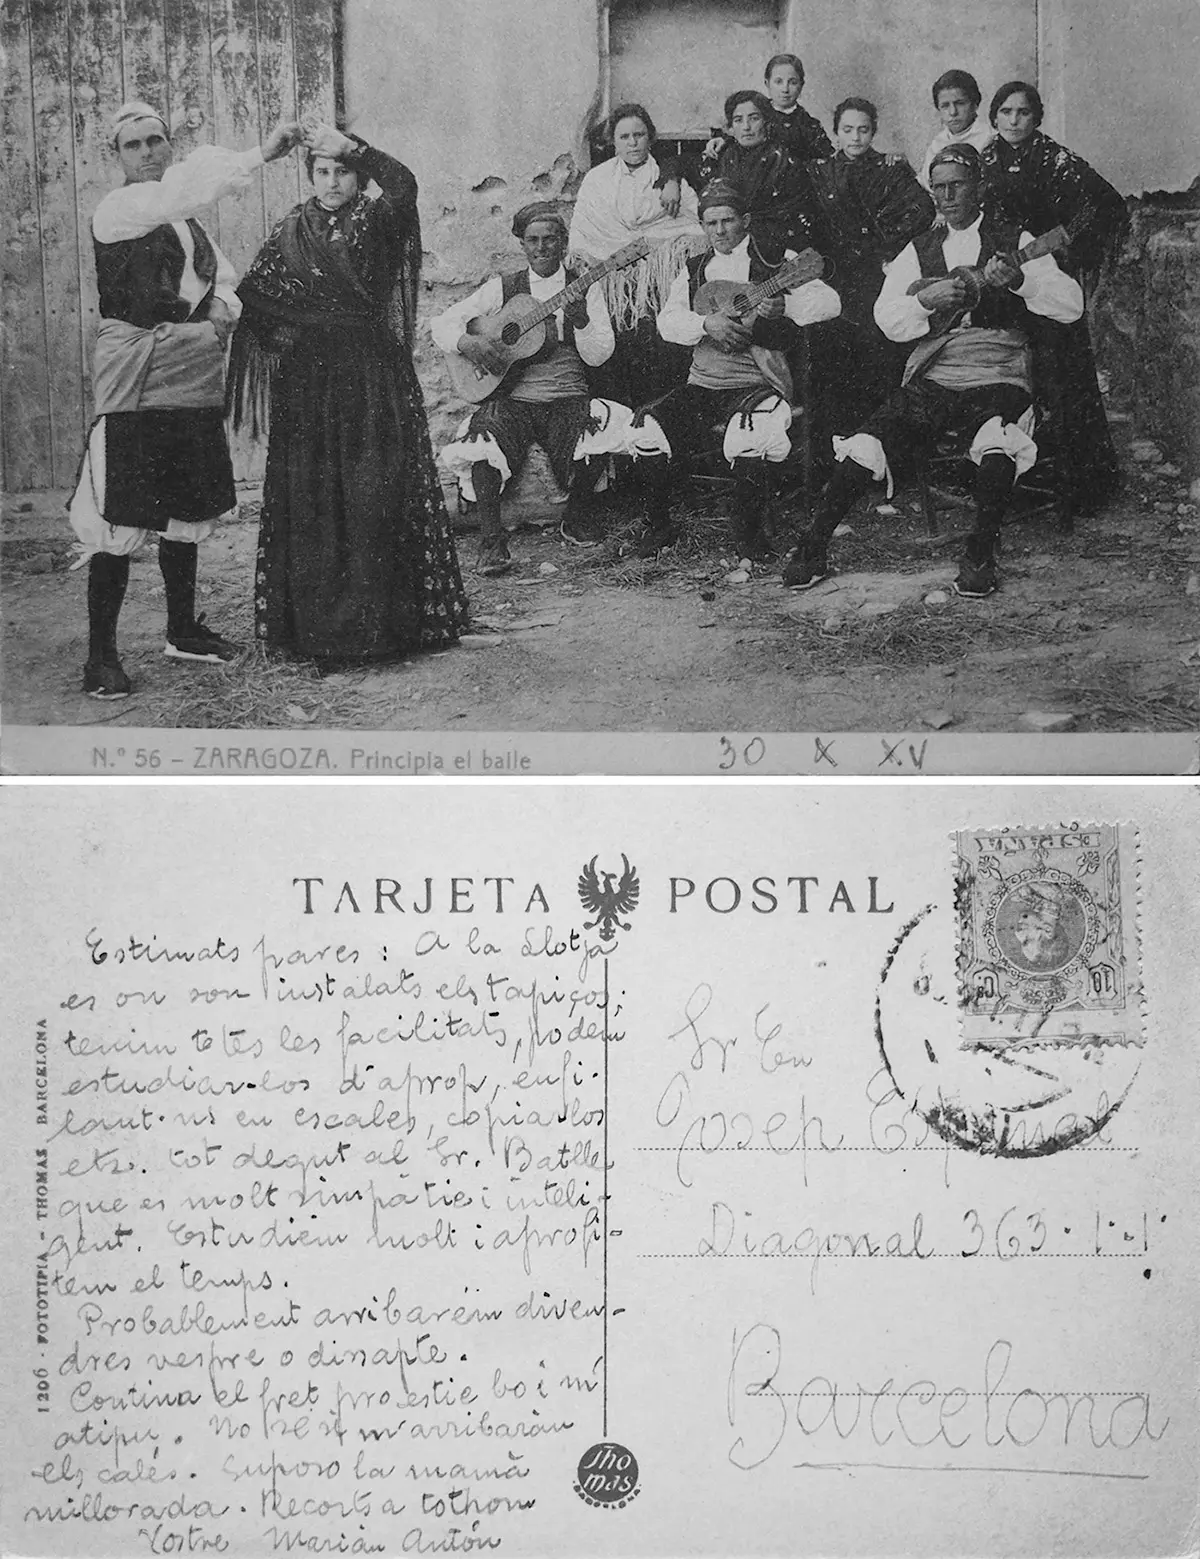 N.º 56 – ZARAGOZA. Principia el baile
30 X XV
TARJETA POSTAL
Estimats pares: A la Llotja
es on son instalats els tapiços;
tenim totes les facilitats, podem
estudiar-los d'aprop, enfi-
lant-ns en escales, copiar-los
etz. tot degut al Sr. Batlle
que es molt simpàtic i inteli-
gent. Estudiem molt i aprofi-
tem el temps.
Probablement arribarém diven-
dres vespre o dissapte.
Continua el fret pro estic bo i m'
atipu. No sé si m'arribaràn
els calés. Suposo la mamà
millorada. Recorts a tothom
Vostre Marián Antón
1206 - FOTOTIPIA - THOMAS BARCELONA
Thomas
BARCELONA
10 Cs
Sr En
Josep Espinal
Diagonal 363 · 1 · 1
Barcelona